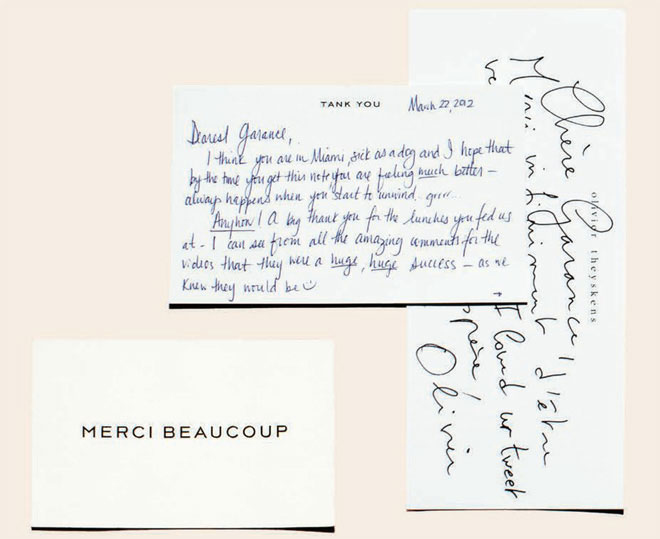 TANK YOU
March 22, 2012
Dearest Garance,
I think you are in Miami, sick as a dog and I hope that
by the time you get this note you are feeling much better –
always happens when you start to unwind.. grrr...
Anyhow! A big thank you for the lunches you fed us
at – I can see from all the amazing comments for the
videos that they were a huge, huge success – as we
knew they would be
olivier theyskens
Chère Garance,
Merci infiniment d'être
I loved ur tweet
Olivier
MERCI BEAUCOUP